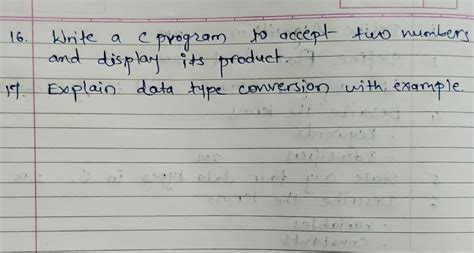 16. Write a c program to accept two numbers
and display its product.
17. Explain data type conversion with example.